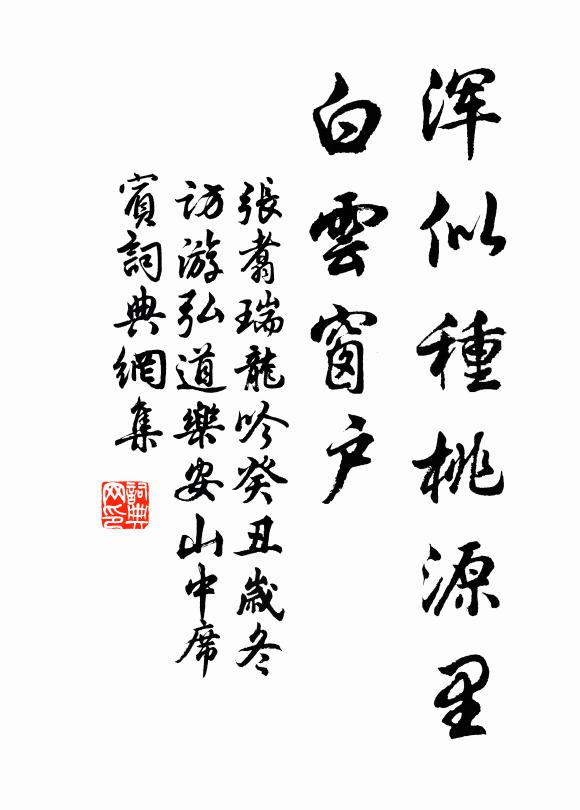 浑似種桃源里
白雲窗户
張翥瑞龍吟癸丑歲冬
访游弘道樂安山中席
賓詞典網集
詞典网印